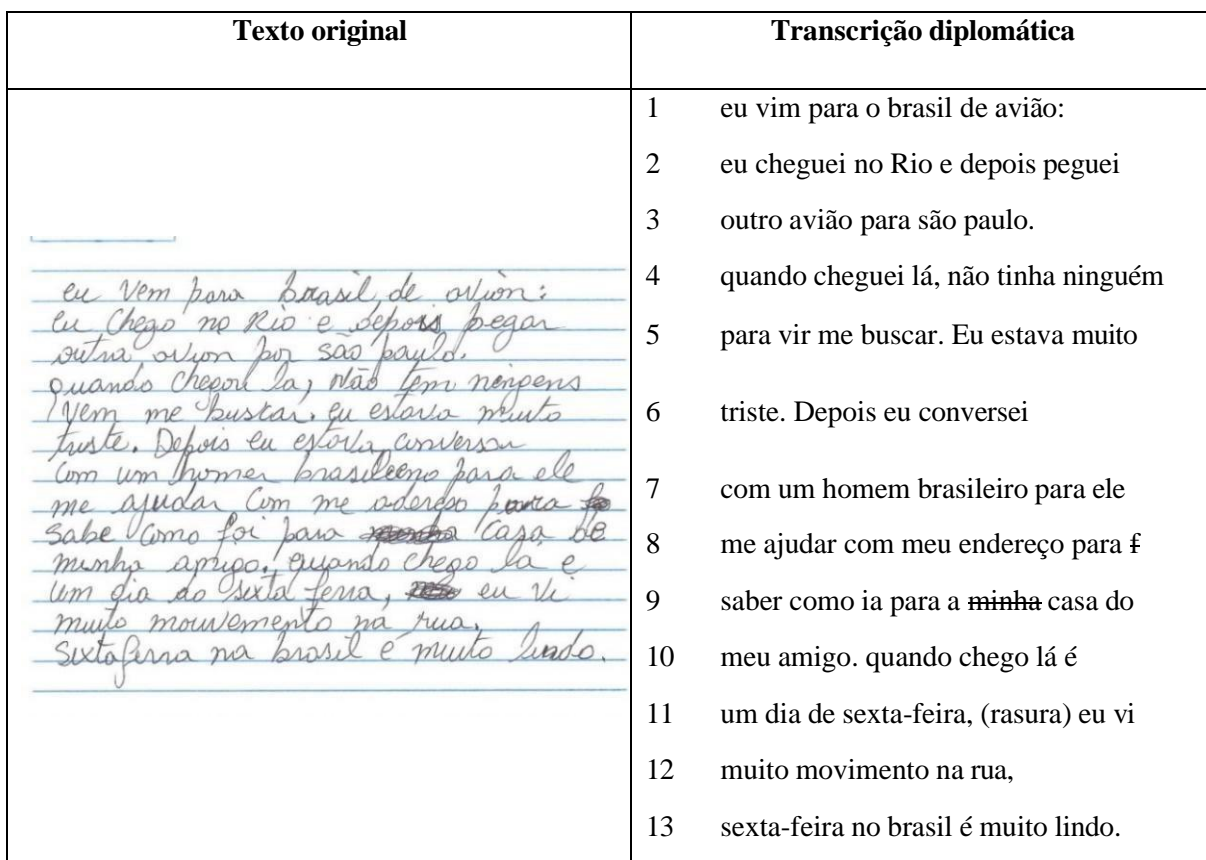 Texto original
Transcrição diplomática
eu vem para brasil, de avion:
eu chego no Rio e depois pegar
outra avion por são paulo.
quando chegou la, não tem ningens
vem me buscar. eu estava muito
triste. Depois eu estava conversar
com um homen brasileeno para ele
me ajudar com me adereso para
sabe como foi para casa de
minha amigo. quando chego là e
um dia do sexta feria, eu vi
muito mouvemento na rua,
sextaferia na brasil e muito lindo.
1 eu vim para o brasil de avião:
2 eu cheguei no Rio e depois peguei
3 outro avião para são paulo.
4 quando cheguei lá, não tinha ninguém
5 para vir me buscar. Eu estava muito
6 triste. Depois eu conversei
7 com um homem brasileiro para ele
8 me ajudar com meu endereço para f
9 saber como ia para a minha casa do
10 meu amigo. quando chego lá é
11 um dia de sexta-feira, (rasura) eu vi
12 muito movimento na rua,
13 sexta-feira no brasil é muito lindo.